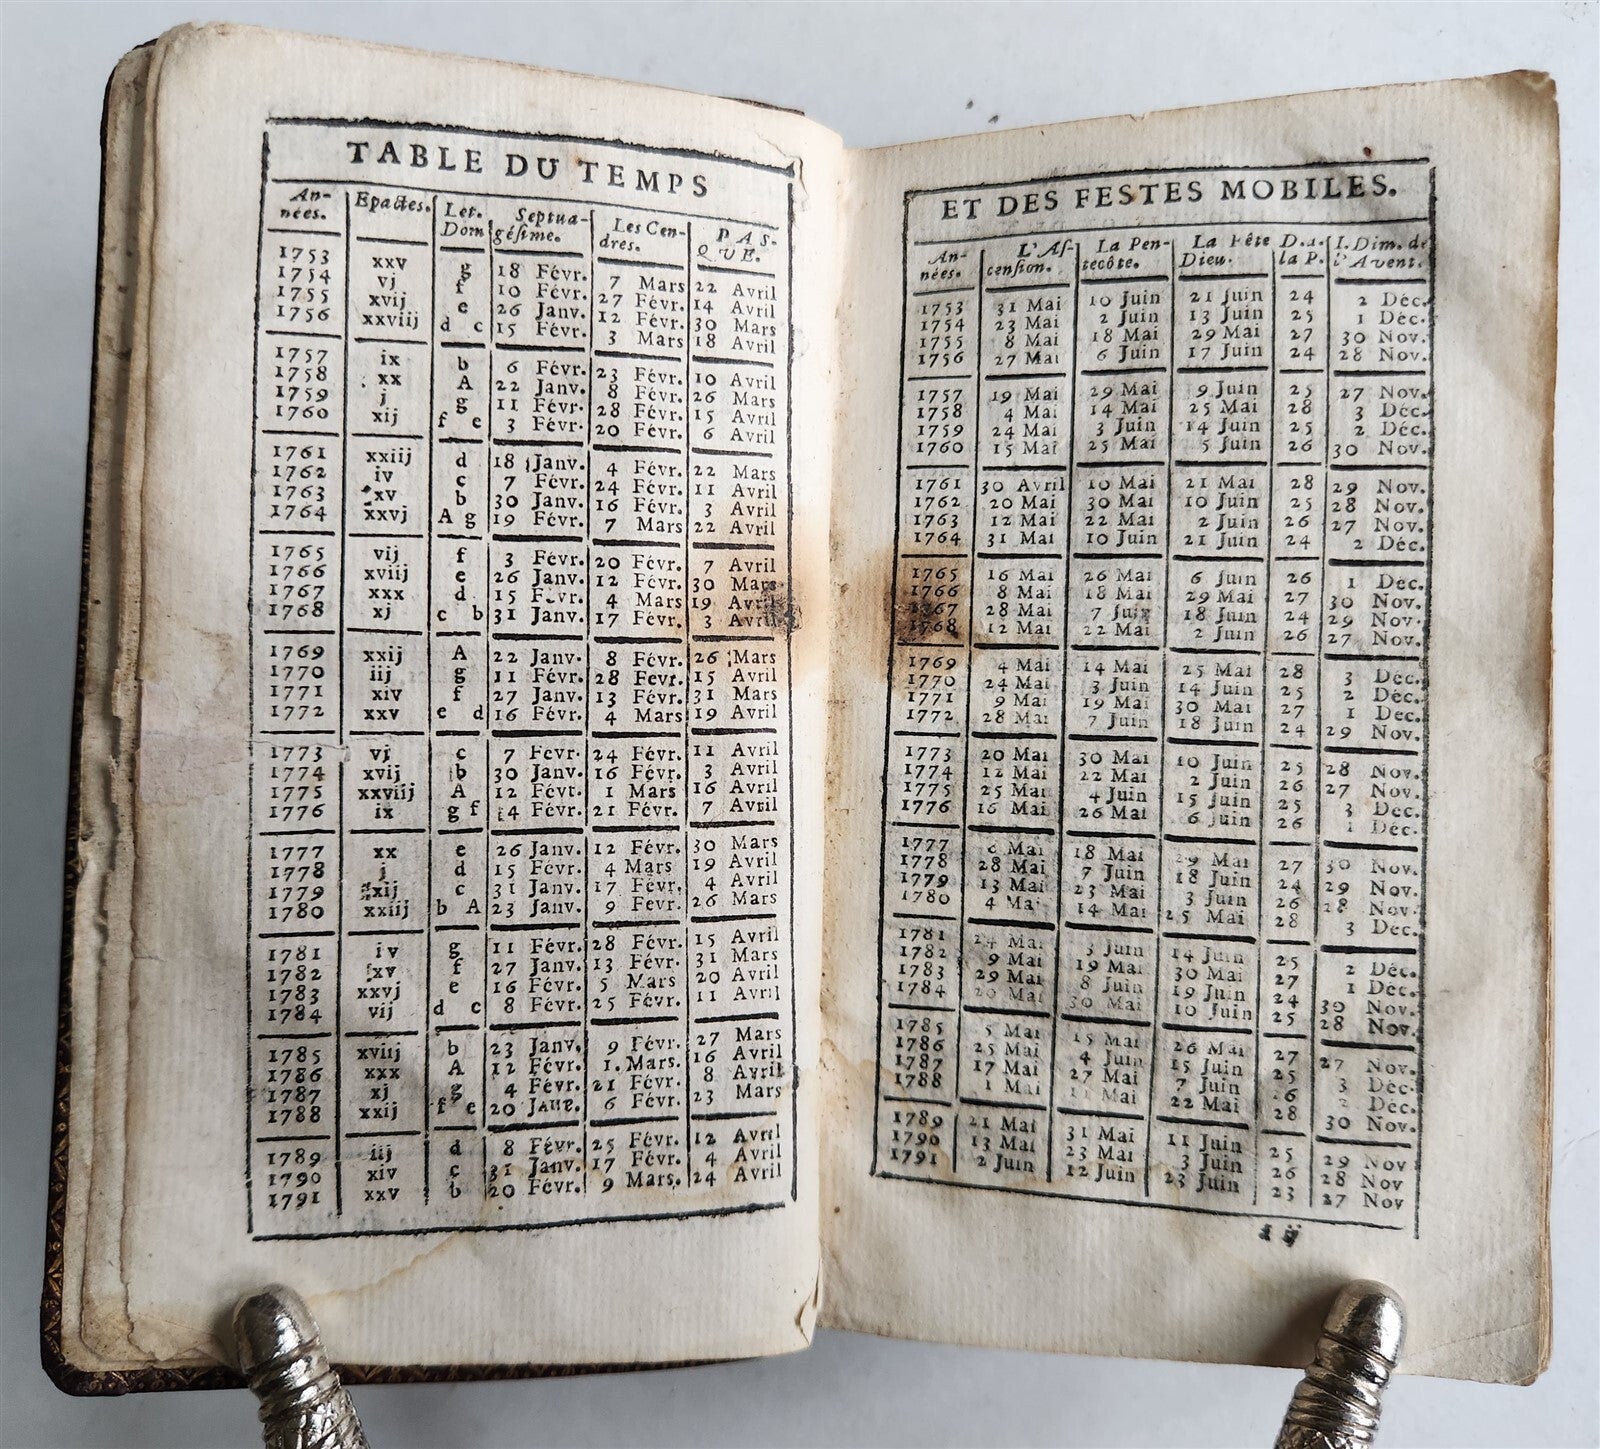 TABLE DU TEMPS
An- nées. Epactes. Let. Dom Septua- gésime. Les Cen- dres. PAS- QUE.
1753 xxv g 18 Févr. 7 Mars 22 Avril
1754 vj f 10 Févr. 27 Févr. 14 Avril
1755 xvij e 26 Janv. 12 Févr. 30 Mars
1756 xxviij d c 15 Févr. 3 Mars 18 Avril
1757 ix b 6 Févr. 23 Févr. 10 Avril
1758 xx A 22 Janv. 8 Févr. 26 Mars
1759 j g 11 Févr. 28 Févr. 15 Avril
1760 xij f e 3 Févr. 20 Févr. 6 Avril
1761 xxiij d 18 Janv. 4 Févr. 22 Mars
1762 iv c 7 Févr. 24 Févr. 11 Avril
1763 xv b 30 Janv. 16 Févr. 3 Avril
1764 xxvj A g 19 Févr. 7 Mars 22 Avril
1765 vij f 3 Févr. 20 Févr. 7 Avril
1766 xviij e 26 Janv. 12 Févr. 30 Mars
1767 xxx d 15 Févr. 4 Mars 19 Avril
1768 xj c b 31 Janv. 17 Févr. 3 Avril
1769 xxij A 22 Janv. 8 Févr. 26 Mars
1770 iij g 11 Févr. 28 Fevr. 15 Avril
1771 xiv f 27 Janv. 13 Févr. 31 Mars
1772 xxv e d 16 Févr. 4 Mars 19 Avril
1773 vj c 7 Fevr. 24 Févr. 11 Avril
1774 xvij b 30 Janv. 16 Févr. 3 Avril
1775 xxviij A 12 Févr. 1 Mars 16 Avril
1776 ix g f 14 Févr. 21 Févr. 7 Avril
1777 xx e 26 Janv. 12 Févr. 30 Mars
1778 j d 15 Févr. 4 Mars 19 Avril
1779 xij c 31 Janv. 17 Févr. 4 Avril
1780 xxiij b A 23 Janv. 9 Févr. 26 Mars
1781 iv g 11 Févr. 28 Févr. 15 Avril
1782 xv f 27 Janv. 13 Févr. 31 Mars
1783 xxvj e 16 Févr. 5 Mars 20 Avril
1784 vij d c 8 Févr. 25 Févr. 11 Avril
1785 xviij b 23 Janv. 9 Févr. 27 Mars
1786 xxx A 12 Févr. 1. Mars. 16 Avril
1787 xj g 4 Févr. 21 Févr. 8 Avril
1788 xxij f e 20 Janv. 6 Févr. 23 Mars
1789 iij d 8 Févr. 25 Févr. 12 Avril
1790 xiv c 31 Janv. 17 Févr. 4 Avril
1791 xxv b 20 Févr. 9 Mars. 24 Avril
ET DES FESTES MOBILES.
An- nées. L'As- cension. La Pen- tecôte. La Fête Dieu. D. a. la P. I. Dim. de l'Avent.
1753 31 Mai 10 Juin 21 Juin 24 2 Déc.
1754 23 Mai 2 Juin 13 Juin 25 1 Déc.
1755 8 Mai 18 Mai 29 Mai 27 30 Nov.
1756 27 Mai 6 Juin 17 Juin 24 28 Nov.
1757 19 Mai 29 Mai 9 Juin 25 27 Nov.
1758 4 Mai 14 Mai 25 Mai 28 3 Déc.
1759 24 Mai 3 Juin 14 Juin 25 2 Déc.
1760 15 Mai 25 Mai 5 Juin 26 30 Nov.
1761 30 Avril 10 Mai 21 Mai 28 29 Nov.
1762 20 Mai 30 Mai 10 Juin 25 28 Nov.
1763 12 Mai 22 Mai 2 Juin 26 27 Nov.
1764 31 Mai 10 Juin 21 Juin 24 2 Déc.
1765 16 Mai 26 Mai 6 Juin 26 1 Dec.
1766 8 Mai 18 Mai 29 Mai 27 30 Nov.
1767 28 Mai 7 Juin 18 Juin 24 29 Nov.
1768 12 Mai 22 Mai 2 Juin 26 27 Nov.
1769 4 Mai 14 Mai 25 Mai 28 3 Déc.
1770 24 Mai 3 Juin 14 Juin 25 2 Déc.
1771 9 Mai 19 Mai 30 Mai 27 1 Dec.
1772 28 Mai 7 Juin 18 Juin 24 29 Nov.
1773 20 Mai 30 Mai 10 Juin 25 28 Nov.
1774 12 Mai 22 Mai 2 Juin 26 27 Nov.
1775 25 Mai 4 Juin 15 Juin 25 3 Déc.
1776 16 Mai 26 Mai 6 Juin 26 1 Dec.
1777 8 Mai 18 Mai 29 Mai 27 30 Nov.
1778 28 Mai 7 Juin 18 Juin 24 29 Nov.
1779 13 Mai 23 Mai 3 Juin 26 28 Nov.
1780 4 Mai 14 Mai 25 Mai 28 3 Dec.
1781 24 Mai 3 Juin 14 Juin 25 2 Déc.
1782 9 Mai 19 Mai 30 Mai 27 1 Déc.
1783 29 Mai 8 Juin 19 Juin 24 30 Nov.
1784 20 Mai 30 Mai 10 Juin 25 28 Nov.
1785 5 Mai 15 Mai 26 Mai 27 27 Nov.
1786 25 Mai 4 Juin 15 Juin 25 3 Déc.
1787 17 Mai 27 Mai 7 Juin 26 2 Dec.
1788 1 Mai 11 Mai 22 Mai 28 30 Nov.
1789 21 Mai 31 Mai 11 Juin 25 29 Nov
1790 13 Mai 23 Mai 3 Juin 26 28 Nov
1791 2 Juin 12 Juin 23 Juin 23 27 Nov
ij